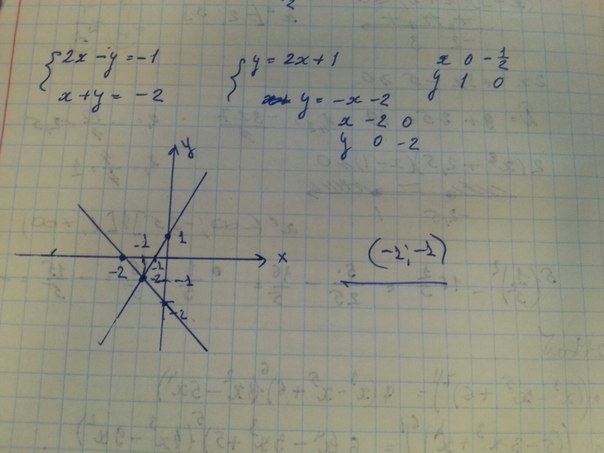 { 2x - y = -1
x + y = -2
{ y = 2x + 1
y = -x - 2
x 0 -1/2
y 1 0
x -2 0
y 0 -2
y
1
x
-1
-2
-1
-2
(-1; -1)